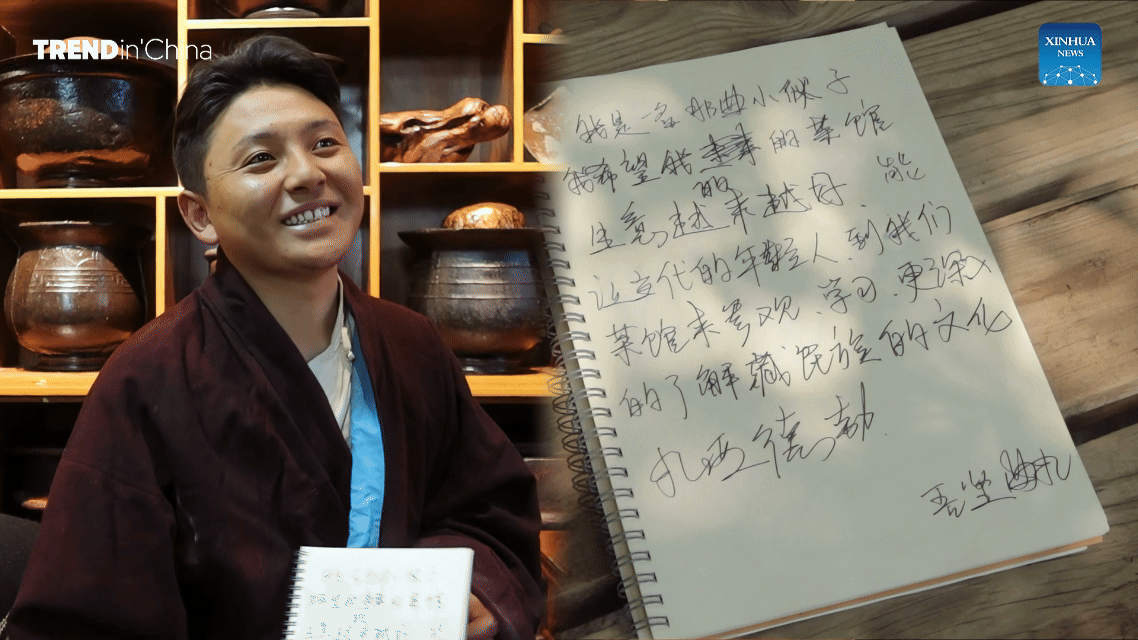 TRENDin'China
XINHUA
NEWS
我是一名那曲小伙子
我希望我的菜馆 能
生意的越来越好、
让文代的年轻人、到我们
菜馆来参观、学习、更深入
的了解藏民族的文化
扎西德勒.
吾坚